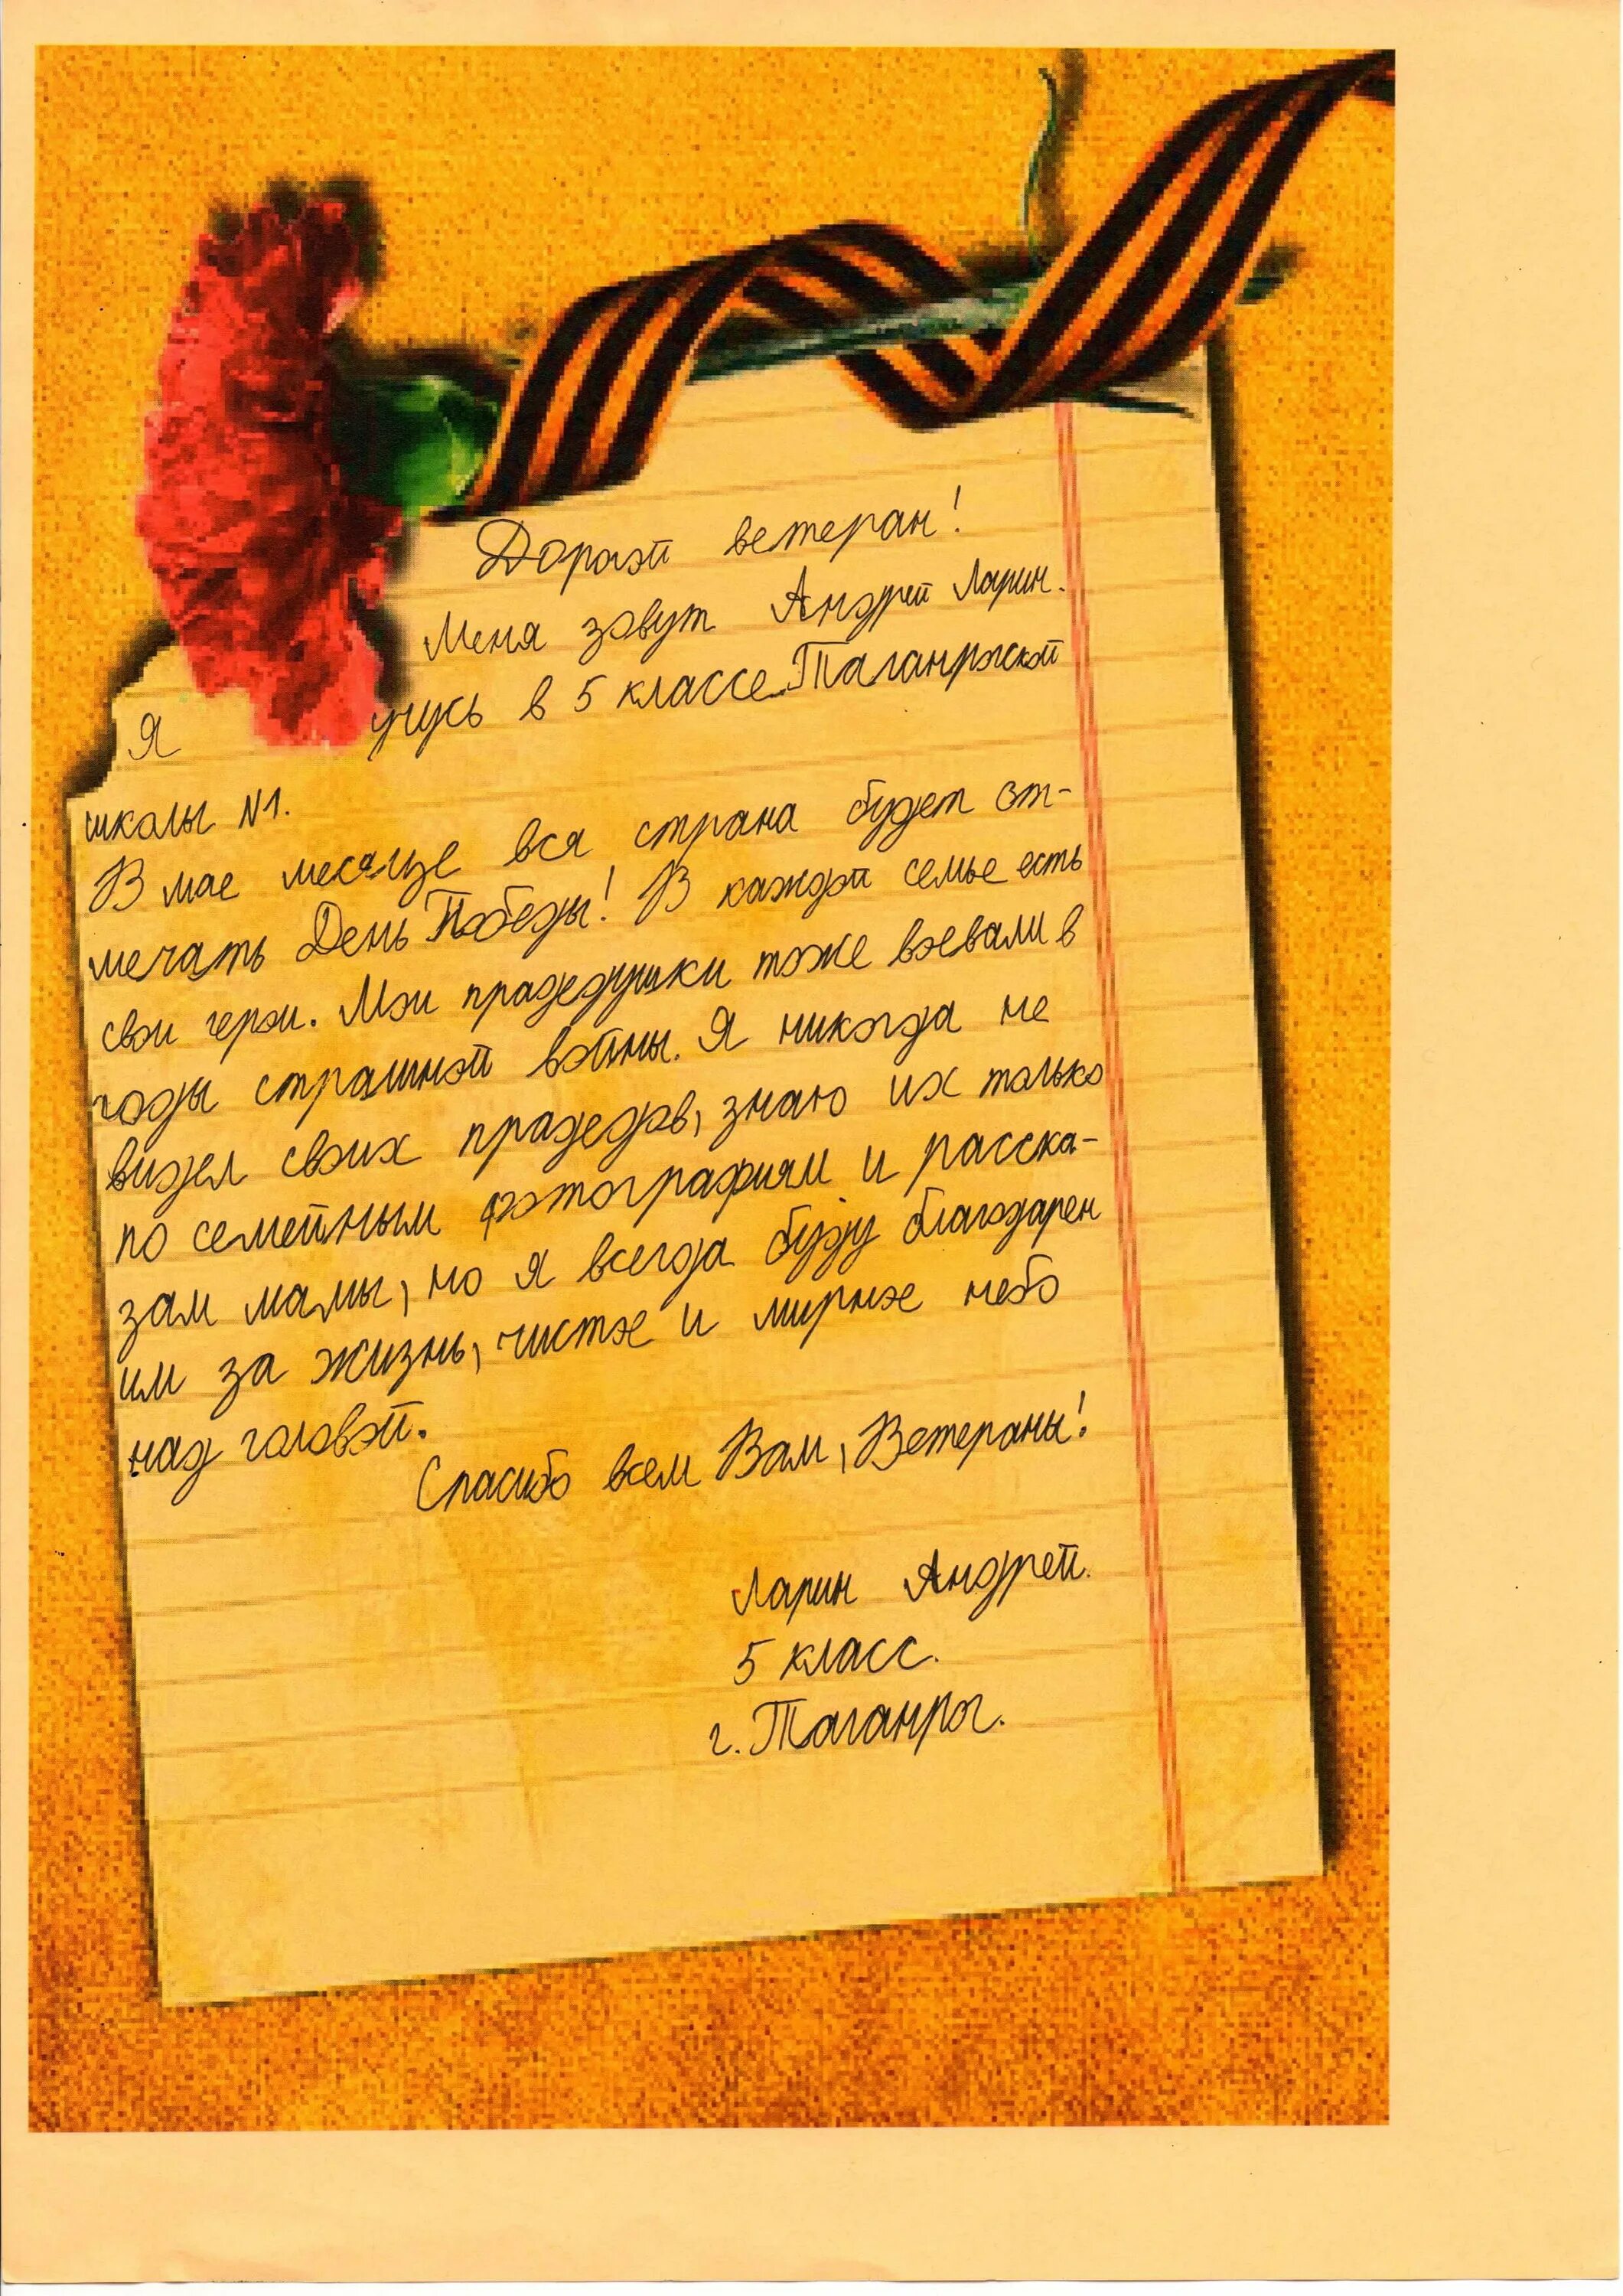 Дорогой ветеран!
Меня зовут Андрей Ларин.
Я учусь в 5 классе Таганрогской
школы №1.
В мае месяце вся страна будет от-
мечать День Победы! В каждой семье есть
свои герои. Мои прадедушки тоже воевали в
годы страшной войны. Я никогда не
видел своих прадедов, знаю их только
по семейным фотографиям и расска-
зам мамы, но я всегда буду благодарен
им за жизнь, чистое и мирное небо
над головой.
Спасибо всем Вам, Ветераны!
Ларин Андрей.
5 класс.
г. Таганрог.